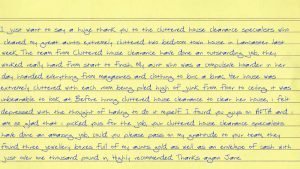 I just want to say a huge thank you to the cluttered house clearance specialists who
cleared my great aunts extremely cluttered two bedroom town house in Lancaster last
week. The team from cluttered house clearance have done an outstanding job, they
worked really hard from start to finish. My aunt who was a compulsive hoarder in her
day hoarded everything from magazines and clothing to bric a brac. Her house was
extremely cluttered with each room being piled high of junk from floor to ceiling, it was
unbearable to look at. Before hiring cluttered house clearance to clear her house, I felt
depressed with the thought of having to do it myself. I found you guys on BETA and I
am so glad that I picked yous for the job, our cluttered house clearance specialists
have done an amazing job, could you please pass on my gratitude to your team, they
found three jewellery boxes full of my aunts gold as well as an envelope of cash with
just over one thousand pound in. Highly recommended. Thanks again Jane.